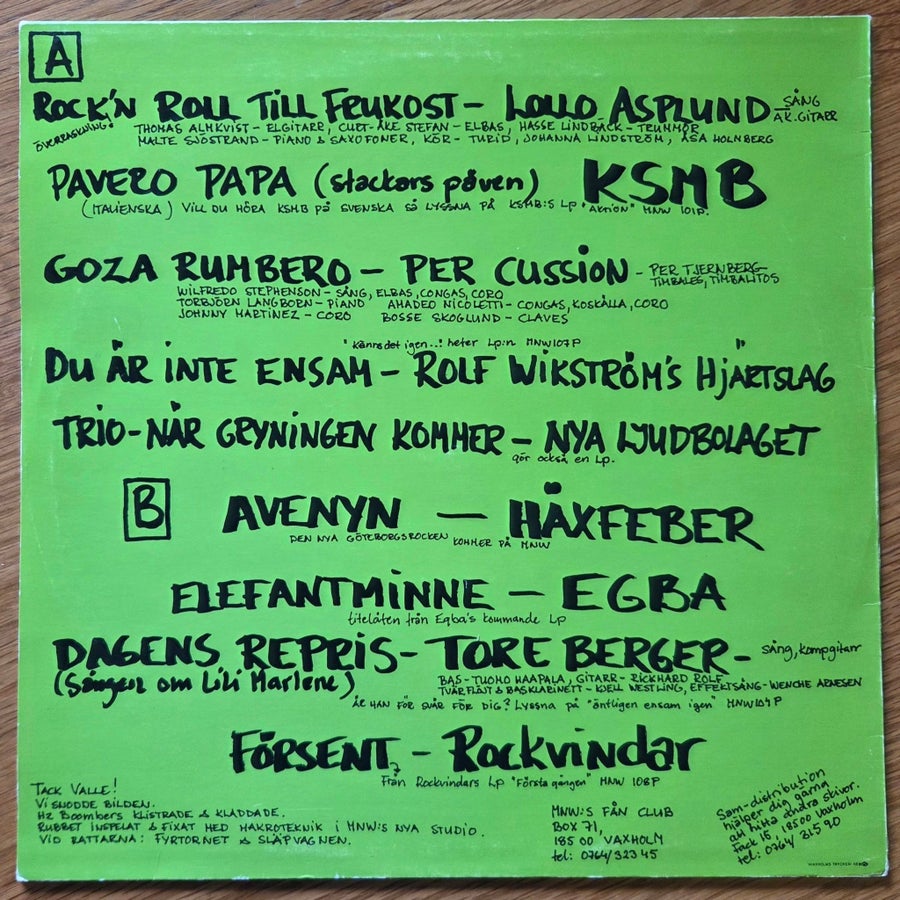 A
ROCK'N ROLL TILL FRUKOST - LOLLO ASPLUND - SÅNG AK.GITARR
ÖVERRASKNING! THOMAS ALMKVIST - ELGITARR, CURT-ÅKE STEFAN - ELBAS, HASSE LINDBÄCK - TRUMMOR
MALTE SJÖSTRAND - PIANO & SAXOFONER, KÖR - TURID, JOHANNA LINDSTRÖM, ÅSA HOLMBERG
PAVERO PAPA (stackars påven) KSMB
(ITALIENSKA) VILL DU HÖRA KSMB PÅ SVENSKA SÅ LYSSNA PÅ KSMB:S LP "AKTION" MNW 101P.
GOZA RUMBERO - PER CUSSION - PER TJERNBERG - TIMBALES, TIMBALITOS
WILFREDO STEPHENSON - SÅNG, ELBAS, CONGAS, CORO
TORBJÖRN LANGBORN - PIANO AMADEO NICOLETTI - CONGAS, KOSKÄLLA, CORO
JOHNNY MARTINEZ - CORO BOSSE SKOGLUND - CLAVES
"Känns det igen..." heter Lp:n MNW107P
DU ÄR INTE ENSAM - ROLF WIKSTRÖM'S HJÄRTSLAG
TRIO-NÄR GRYNINGEN KOMMER - NYA LJUDBOLAGET
gör också en Lp.
B AVENYN - HÄXFEBER
DEN NYA GÖTEBORGSROCKEN KOMMER PÅ MNW
ELEFANTMINNE - EGBA
titellåten från Egba's kommande LP
DAGENS REPRIS - TORE BERGER - sång, kompgitarr
(Sången om Lili Marlene) BAS - TUOMO HAAPALA, GITARR - RICKHARD ROLF
TVÄRFLÖJT & BASKLARINETT - KJELL WESTLING, EFFEKTSÅNG - WENCHE ARNESEN
ÄR HAN FÖR SVÅR FÖR DIG? Lyssna på "äntligen ensam igen" MNW104P
FÖRSENT - Rockvindar
Från Rockvindars Lp "Första gången" MNW 108P
TACK VALLE!
VI SNODDE BILDEN.
HZ BOOMBERS KLISTRADE & KLADDADE.
RUBBET INSPELAT & FIXAT MED MAKROTEKNIK I MNW:S NYA STUDIO.
VID RATTARNA: FYRTORNET & SLÄPVAGNEN.
MNW:S FÅN CLUB
BOX 71,
185 00 VAXHOLM
tel: 0764/323 45
Sam-distribution
hjälper dig gärna
att hitta andra skivor.
Fack 15, 185 00 Vaxholm
tel: 0764/315 90